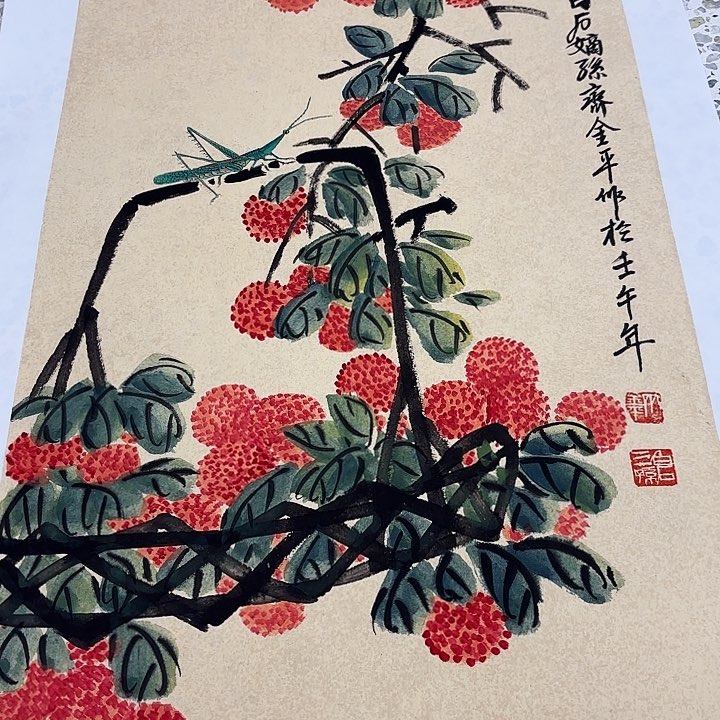 白石嫡孫齊金平作於壬午年